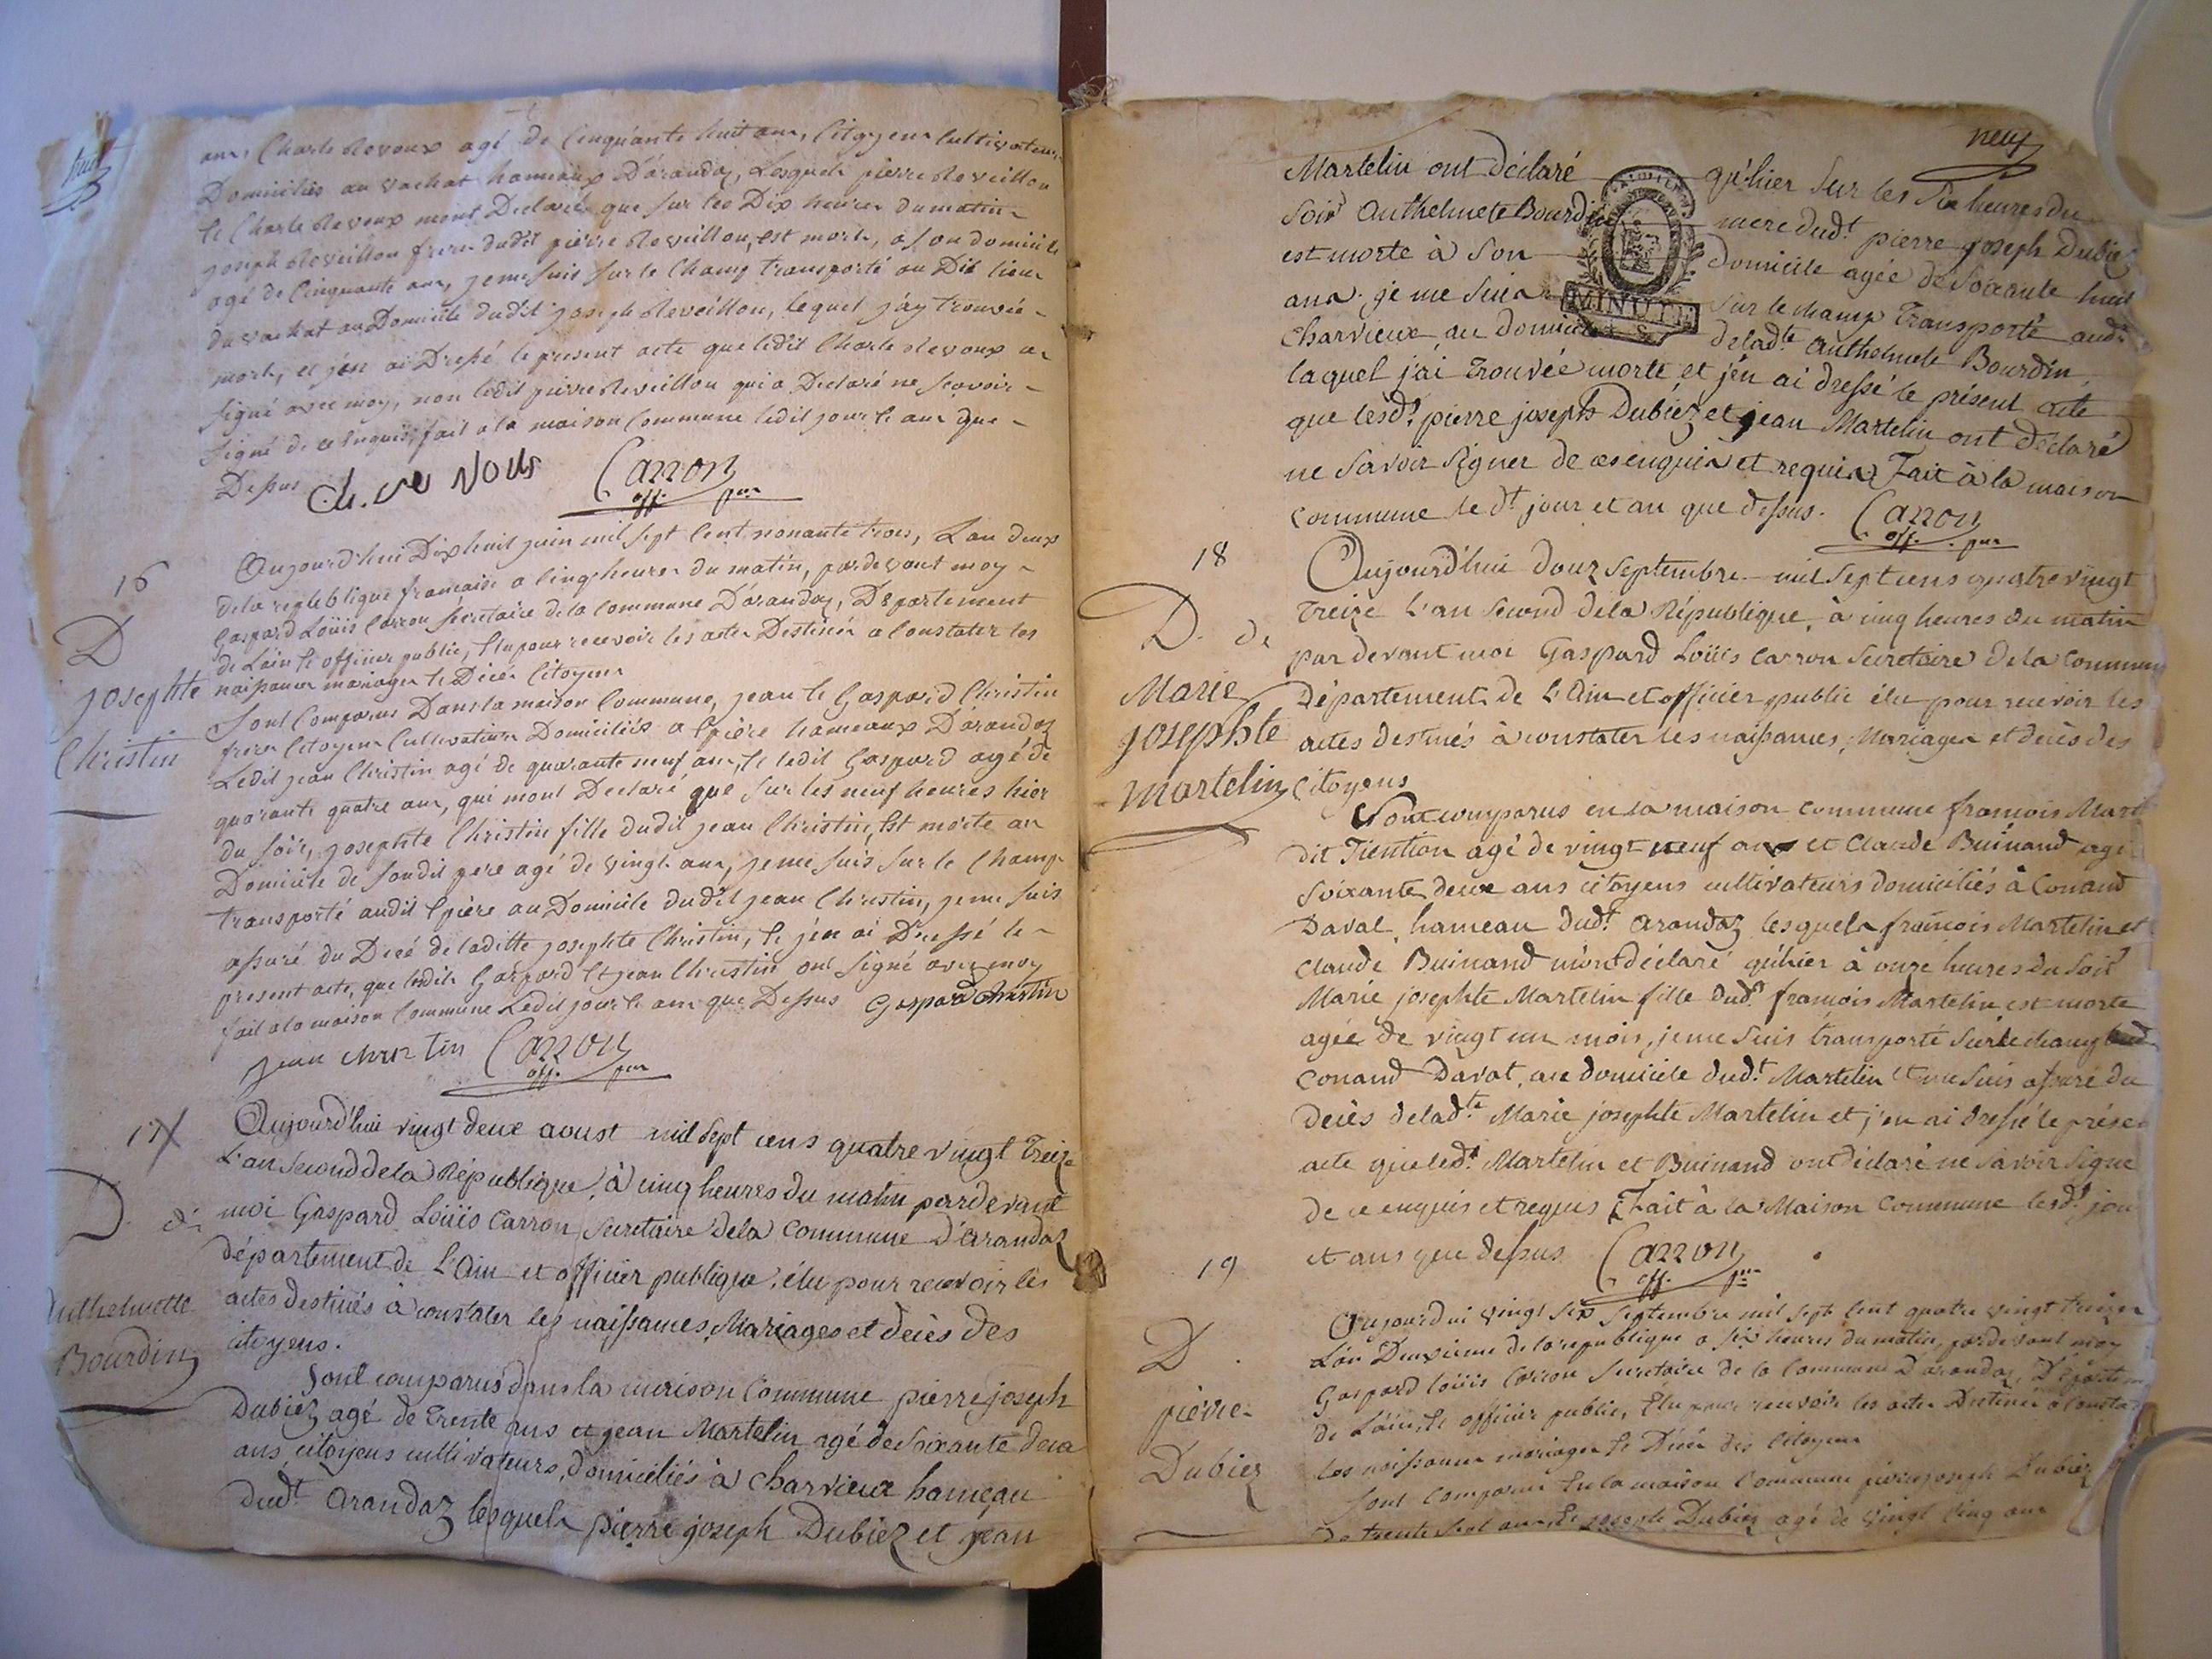 huit
ans, Charle Revoux agé de Cinquante huit ans, Citoyens Cultivateurs
Domiciliés au vachat hameaux D'arandaz, Lesquels pierre Reveillon
et Charle Revoux mont Declaré que sur les Dix heures du matin
joseph Reveillon frere dudit pierre Reveillon, est mort, a son domicile
agé de Cinquante ans, je me suis sur le Champ transporté au Dit lieu
du vachat au Domicile dudit joseph Reveillon, lequel j'ay trouvé
mort, et j'en ai Dressé le present acte que ledit Charle Revoux a
signé avec moy, non ledit pierre Reveillon qui a Declaré ne scavoir
signé de ce enquis, fait a la maison Commune ledit jour et an que
Dessus
Carron
off. pur
16
D
josephte
Christin
Aujourd'hui Dix huit juin mil sept Cent nonante trois, L'an deux
de la republique francaise a Cinq heures du matin, pardevant moy
Gaspard Loüis Carron secretaire de la Commune D'arandaz, Departement
de Lain et officier public, Elu pour recevoir les actes Destinés a Constater les
naissances mariages et Décés Citoyens
sont Comparus Dans la maison Commune, jean et Gaspard Christin
freres Citoyens Cultivateurs Domiciliés a lpiére hameaux D'arandaz
Ledit jean Christin agé de quarante neuf ans, et ledit Gaspard agé de
quarante quatre ans, qui mont Declaré que sur les neuf heures hier
du soir, josephte Christin fille dudit jean Christin, Est morte au
Domicile de sondit pere agé de vingt ans, je me suis sur le Champ
transporté audit lpiére au Domicile dudit jean Christin, je me suis
assuré du Decé de laditte josephte Christin, et j'en ai Dressé le
present acte, que lesdits Gaspard et jean Christin ont signé avec moy
fait a la maison Commune Ledit jour et an que Dessus Gaspard Christin
jean christin Carron
off. pur
17
D. de
Anthelmette
Bourdin
Aujourd'hui vingt deux aoust mil sept cens quatre vingt Treize
L'an second de la République, à cinq heures du matin pardevant
moi Gaspard Loüis Carron Secretaire de la Commune d'arandaz
département de L'Ain et officier publique, élu pour recevoir les
actes destinés à constater les naissances, Mariages et décès des
citoyens.
Sont comparus dans la maison Commune pierre joseph
Dubiez agé de Trente ans et jean Martelin agé de soixante deux
ans, citoyens cultivateurs, domiciliés à Charvieux hameau
dudt. arandaz lesquels pierre joseph Dubiez et jean
neuf
Martelin ont déclaré qu'hier sur les six heures du
soir Anthelmete Bourdin mere dudt. pierre joseph Dubiez
est morte à son domicile agée de soixante huit
ans. je me suis sur le champ Transporté audt.
Charvieux au domicile de ladte. Anthelmete Bourdin
laquel j'ai Trouvée morte et j'en ai dressé le présent acte
que lesdt. pierre joseph Dubiez et jean Martelin ont déclaré
ne savoir signer de ce enquis et requis. Fait à la maison
Commune le dt. jour et an que dessus. Carron
off. pur
MINUTE
18
D. de
Marie
josephte
martelin
Aujourd'hui douz septembre mil sept cens quatre vingt
Treize L'an second de la République, à cinq heures du matin
par devant moi Gaspard Loüis Carron secretaire de la Commune
département de L'Ain et officier public élu pour recevoir les
actes destinés à constater les naissances, Mariages et décès des
citoyens
Sont comparus en la maison commune francois Mart
dit agé de vingt neuf ans et Claude Buinand agé
soixante deux ans citoyens cultivateurs domiciliés à Conand
Daval, hameau dudt. arandaz lesquels francois Martelin et
Claude Buinand m'ont déclaré qu'hier à onze heures du soir
Marie josephte Martelin fille dudt. francois Martelin est morte
agée de vingt un mois, je me suis transporté sur le champ
Conand Daval, au domicile dudt. Martelin et me suis assuré du
décès de ladte. Marie josephte Martelin et j'en ai dressé le prése
acte que ledt. Martelin et Buinand ont déclaré ne savoir signe
de ce enquis et requis. Fait à la Maison Commune lesdt. jou
et ans que dessus Carron
off. pur
19
D.
pierre
Dubiez
Aujourdui vingt six septembre mil sept Cent quatre vingt treize
L'an Deuxieme de la republique a six heures du matin, pardevant moy
Gaspard loüis Carron secretaire de la Commune D'arandaz, Departem
de Lain, et officier public, Elu pour recevoir les actes Destinés a Consta
les naissances mariages et Décés des Citoyens
sont Comparus En la maison Commune pierre joseph Dubiez
de trente sept ans, et joseph Dubiez agé de vingt Cinq ans